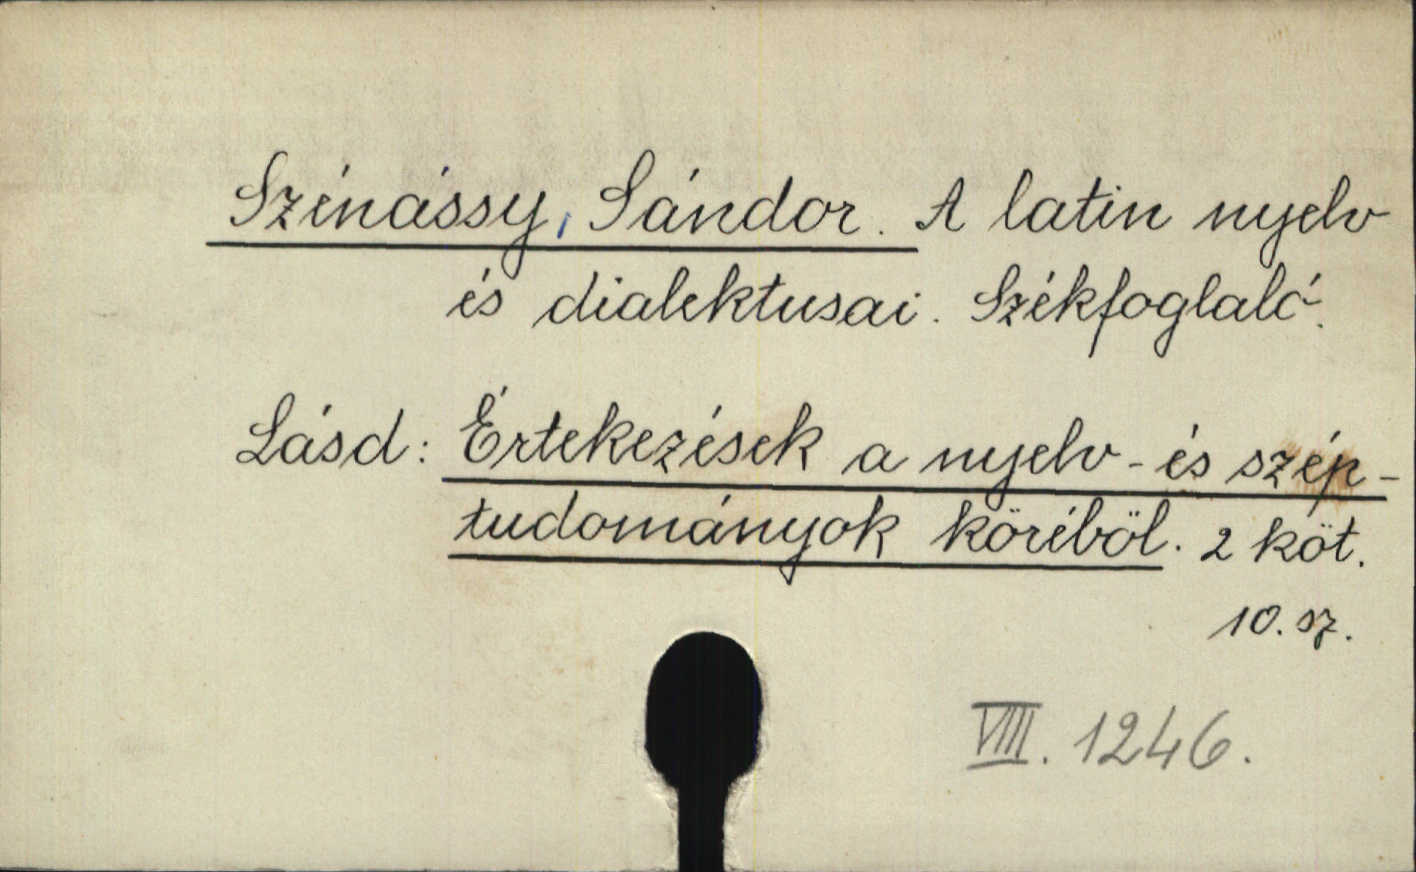 Szénássy, Sándor. A latin nyelv
és dialektusai. Székfoglaló.
Lásd: Értekezések a nyelv- és szép-
tudományok köréböl. 2 köt.
10. sz.
VIII. 1246.